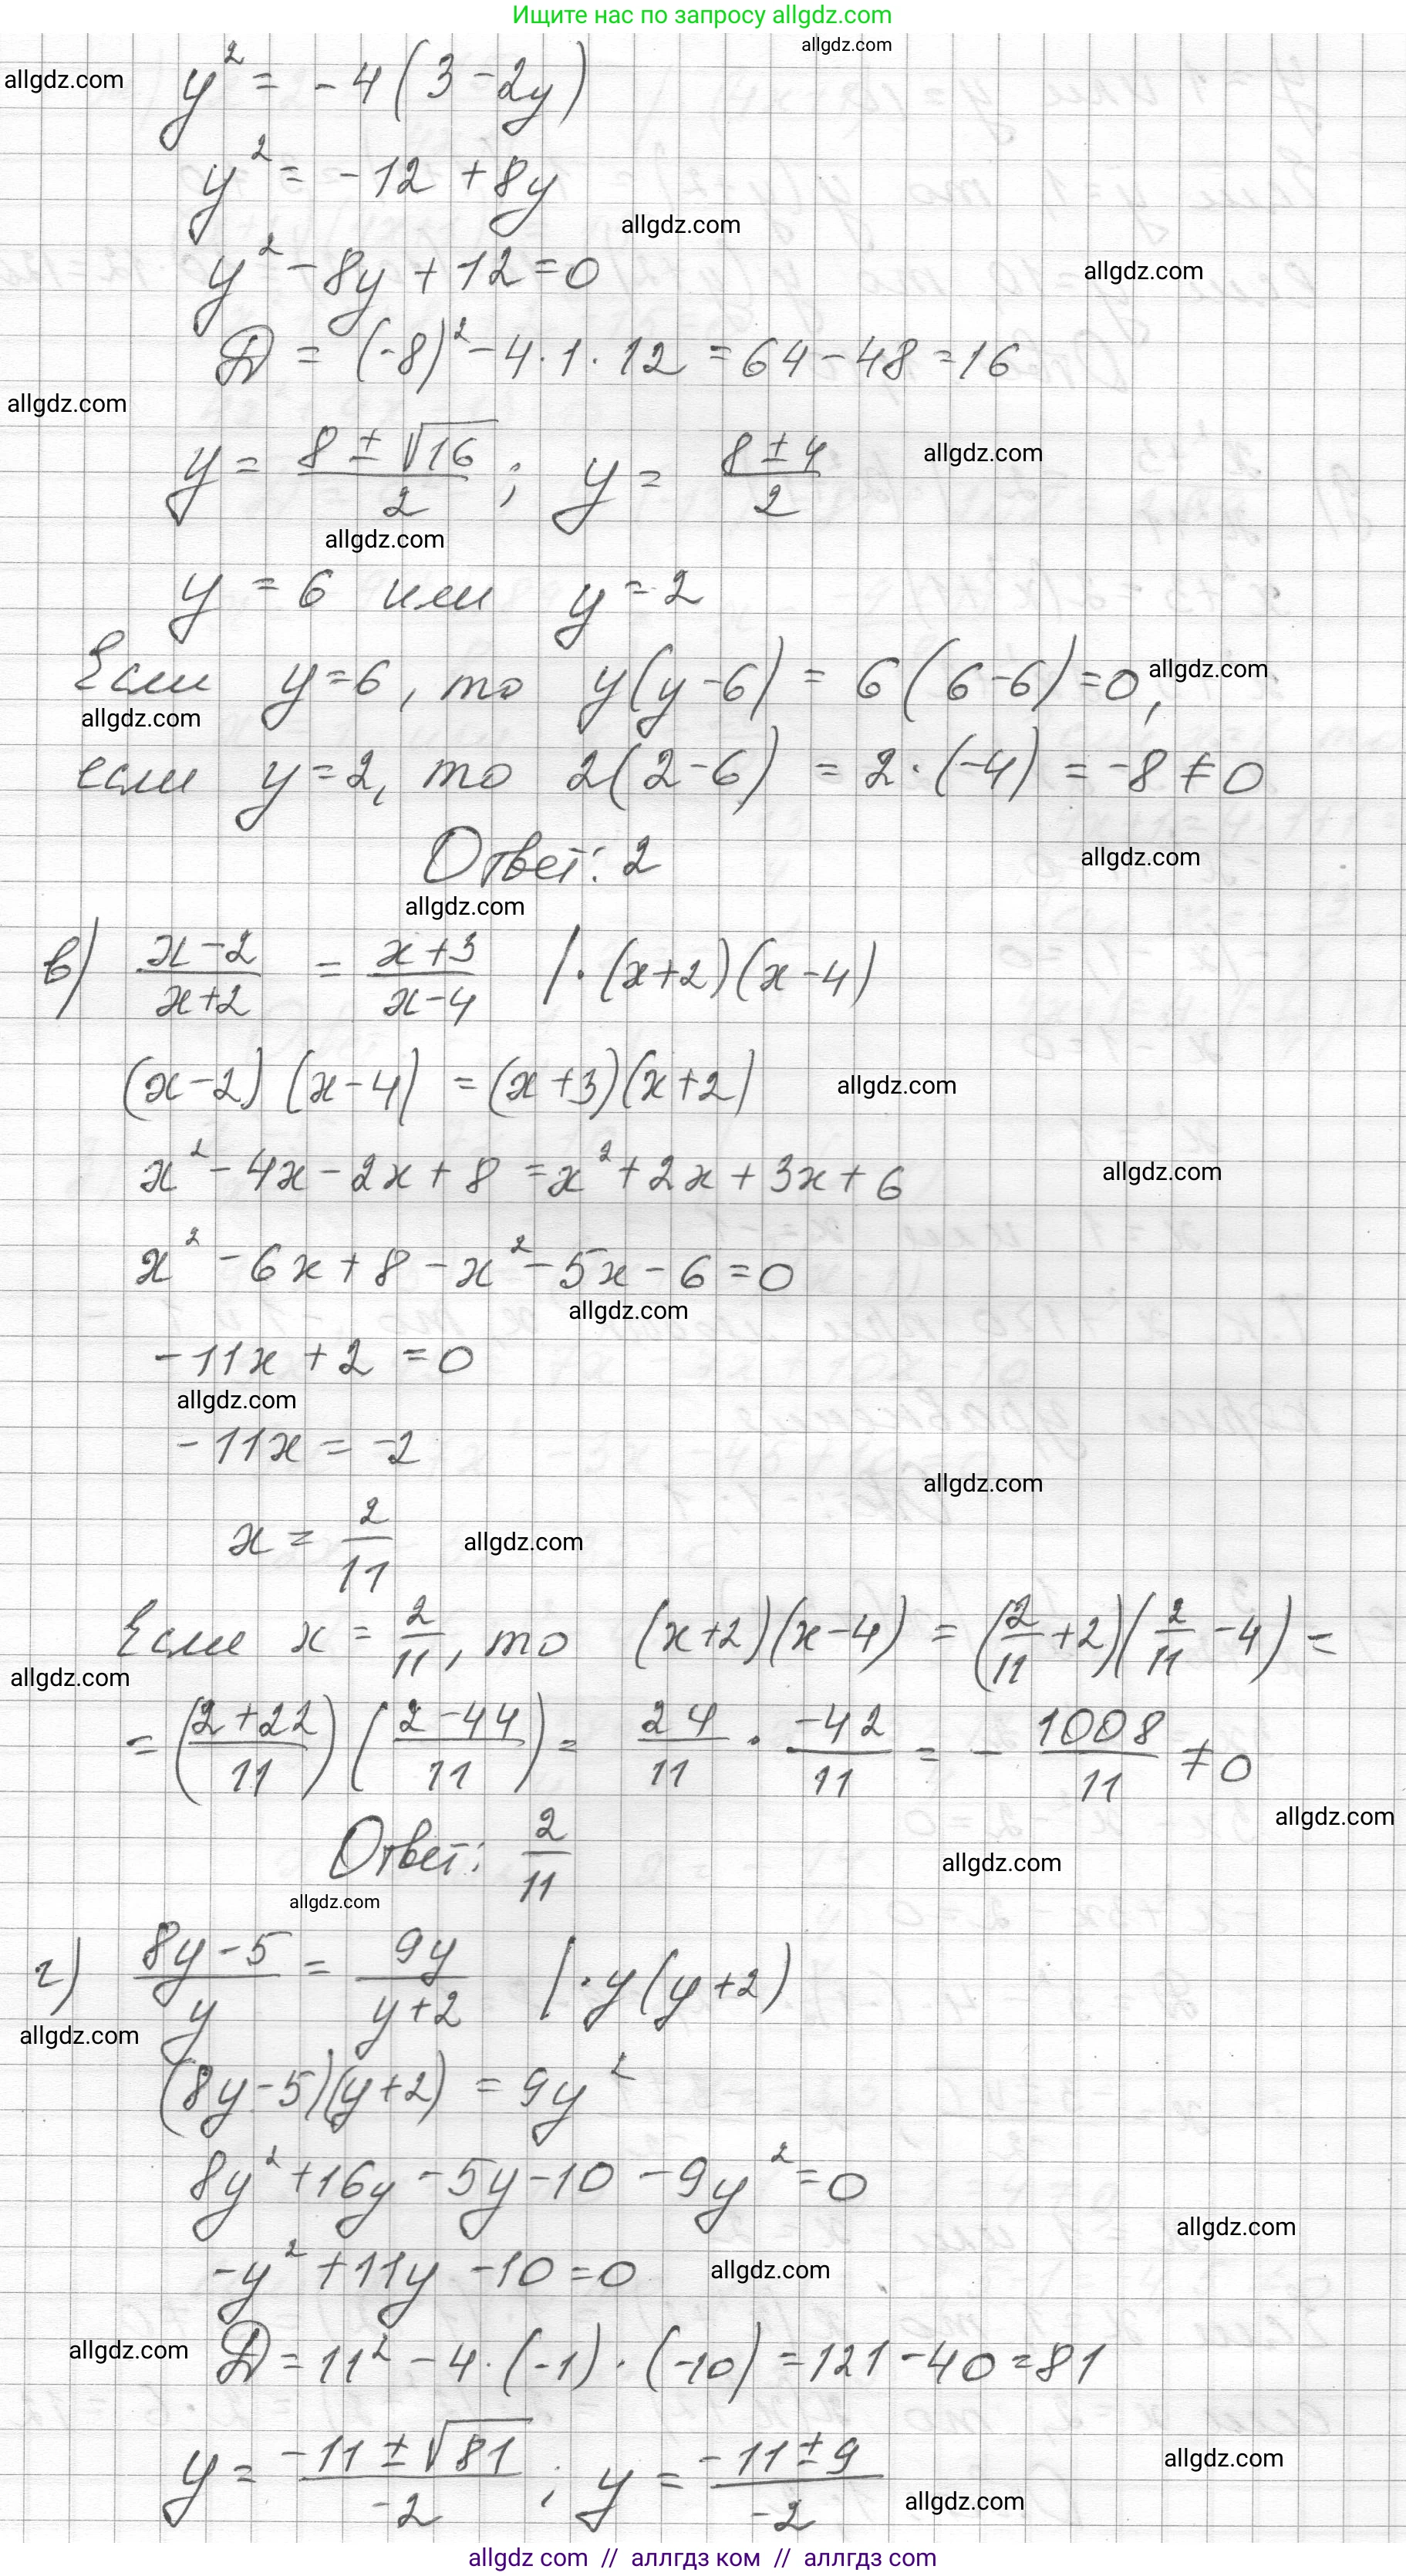 Ищите нас по запросу allgdz.com
allgdz.com
allgdz.com
y² = -4(3-2y)
y² = -12 +8y
allgdz.com
y² - 8y + 12 = 0
allgdz.com
D = (-8)² - 4·1·12 = 64 - 48 = 16
allgdz.com
y = (8 ± √16)/2 ; y = (8 ± 4)/2
allgdz.com
allgdz.com
y = 6 или y = 2
Если y=6, то y(y-6) = 6(6-6)=0,
allgdz.com
allgdz.com
если y=2, то 2(2-6) = 2·(-4) = -8 ≠ 0
Ответ: 2
allgdz.com
allgdz.com
в) (x-2)/(x+2) = (x+3)/(x-4) |·(x+2)(x-4)
(x-2)(x-4) = (x+3)(x+2)
allgdz.com
x² - 4x - 2x + 8 = x² + 2x + 3x + 6
allgdz.com
x² - 6x + 8 - x² - 5x - 6 = 0
allgdz.com
-11x + 2 = 0
allgdz.com
-11x = -2
allgdz.com
x = 2/11
allgdz.com
Если x = 2/11, то (x+2)(x-4) = (2/11 +2)(2/11 -4) =
allgdz.com
= ((2+22)/11) ((2-44)/11) = 24/11 · -42/11 = - 1008/11 ≠ 0
allgdz.com
Ответ: 2/11
allgdz.com
allgdz.com
г) (8y-5)/y = 9y/(y+2) |·y(y+2)
allgdz.com
(8y-5)(y+2) = 9y²
8y² +16y - 5y - 10 - 9y² = 0
allgdz.com
-y² + 11y - 10 = 0
allgdz.com
allgdz.com
D = 11² - 4·(-1)·(-10) = 121 - 40 = 81
y = (-11 ± √81)/-2 ; y = (-11 ± 9)/-2
allgdz.com
allgdz.com
allgdz com // аллгдз ком // аллгдз com